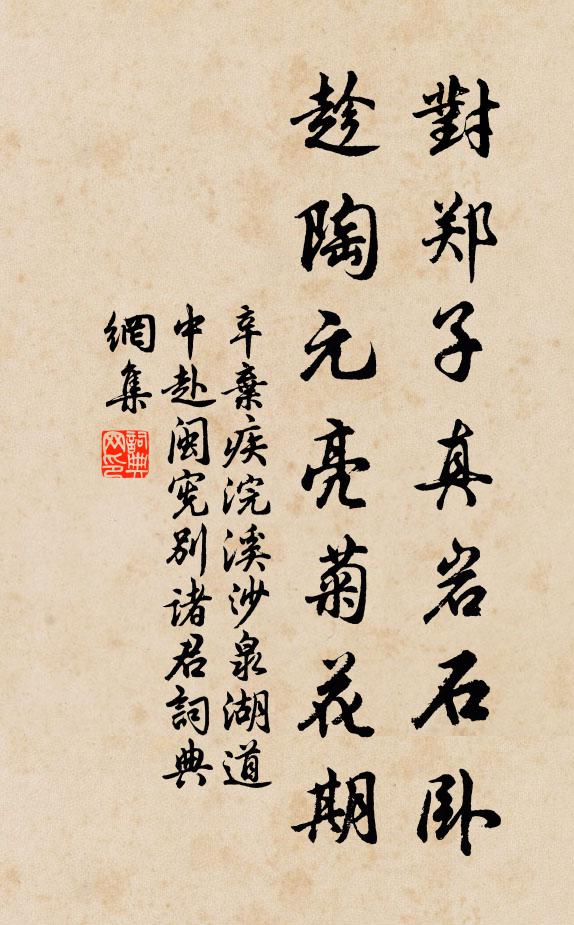 對郑子真岩石卧
趁陶元亮菊花期
辛棄疾浣溪沙泉湖道
中赴闽宪别诸君詞典
網集
詞典
网印